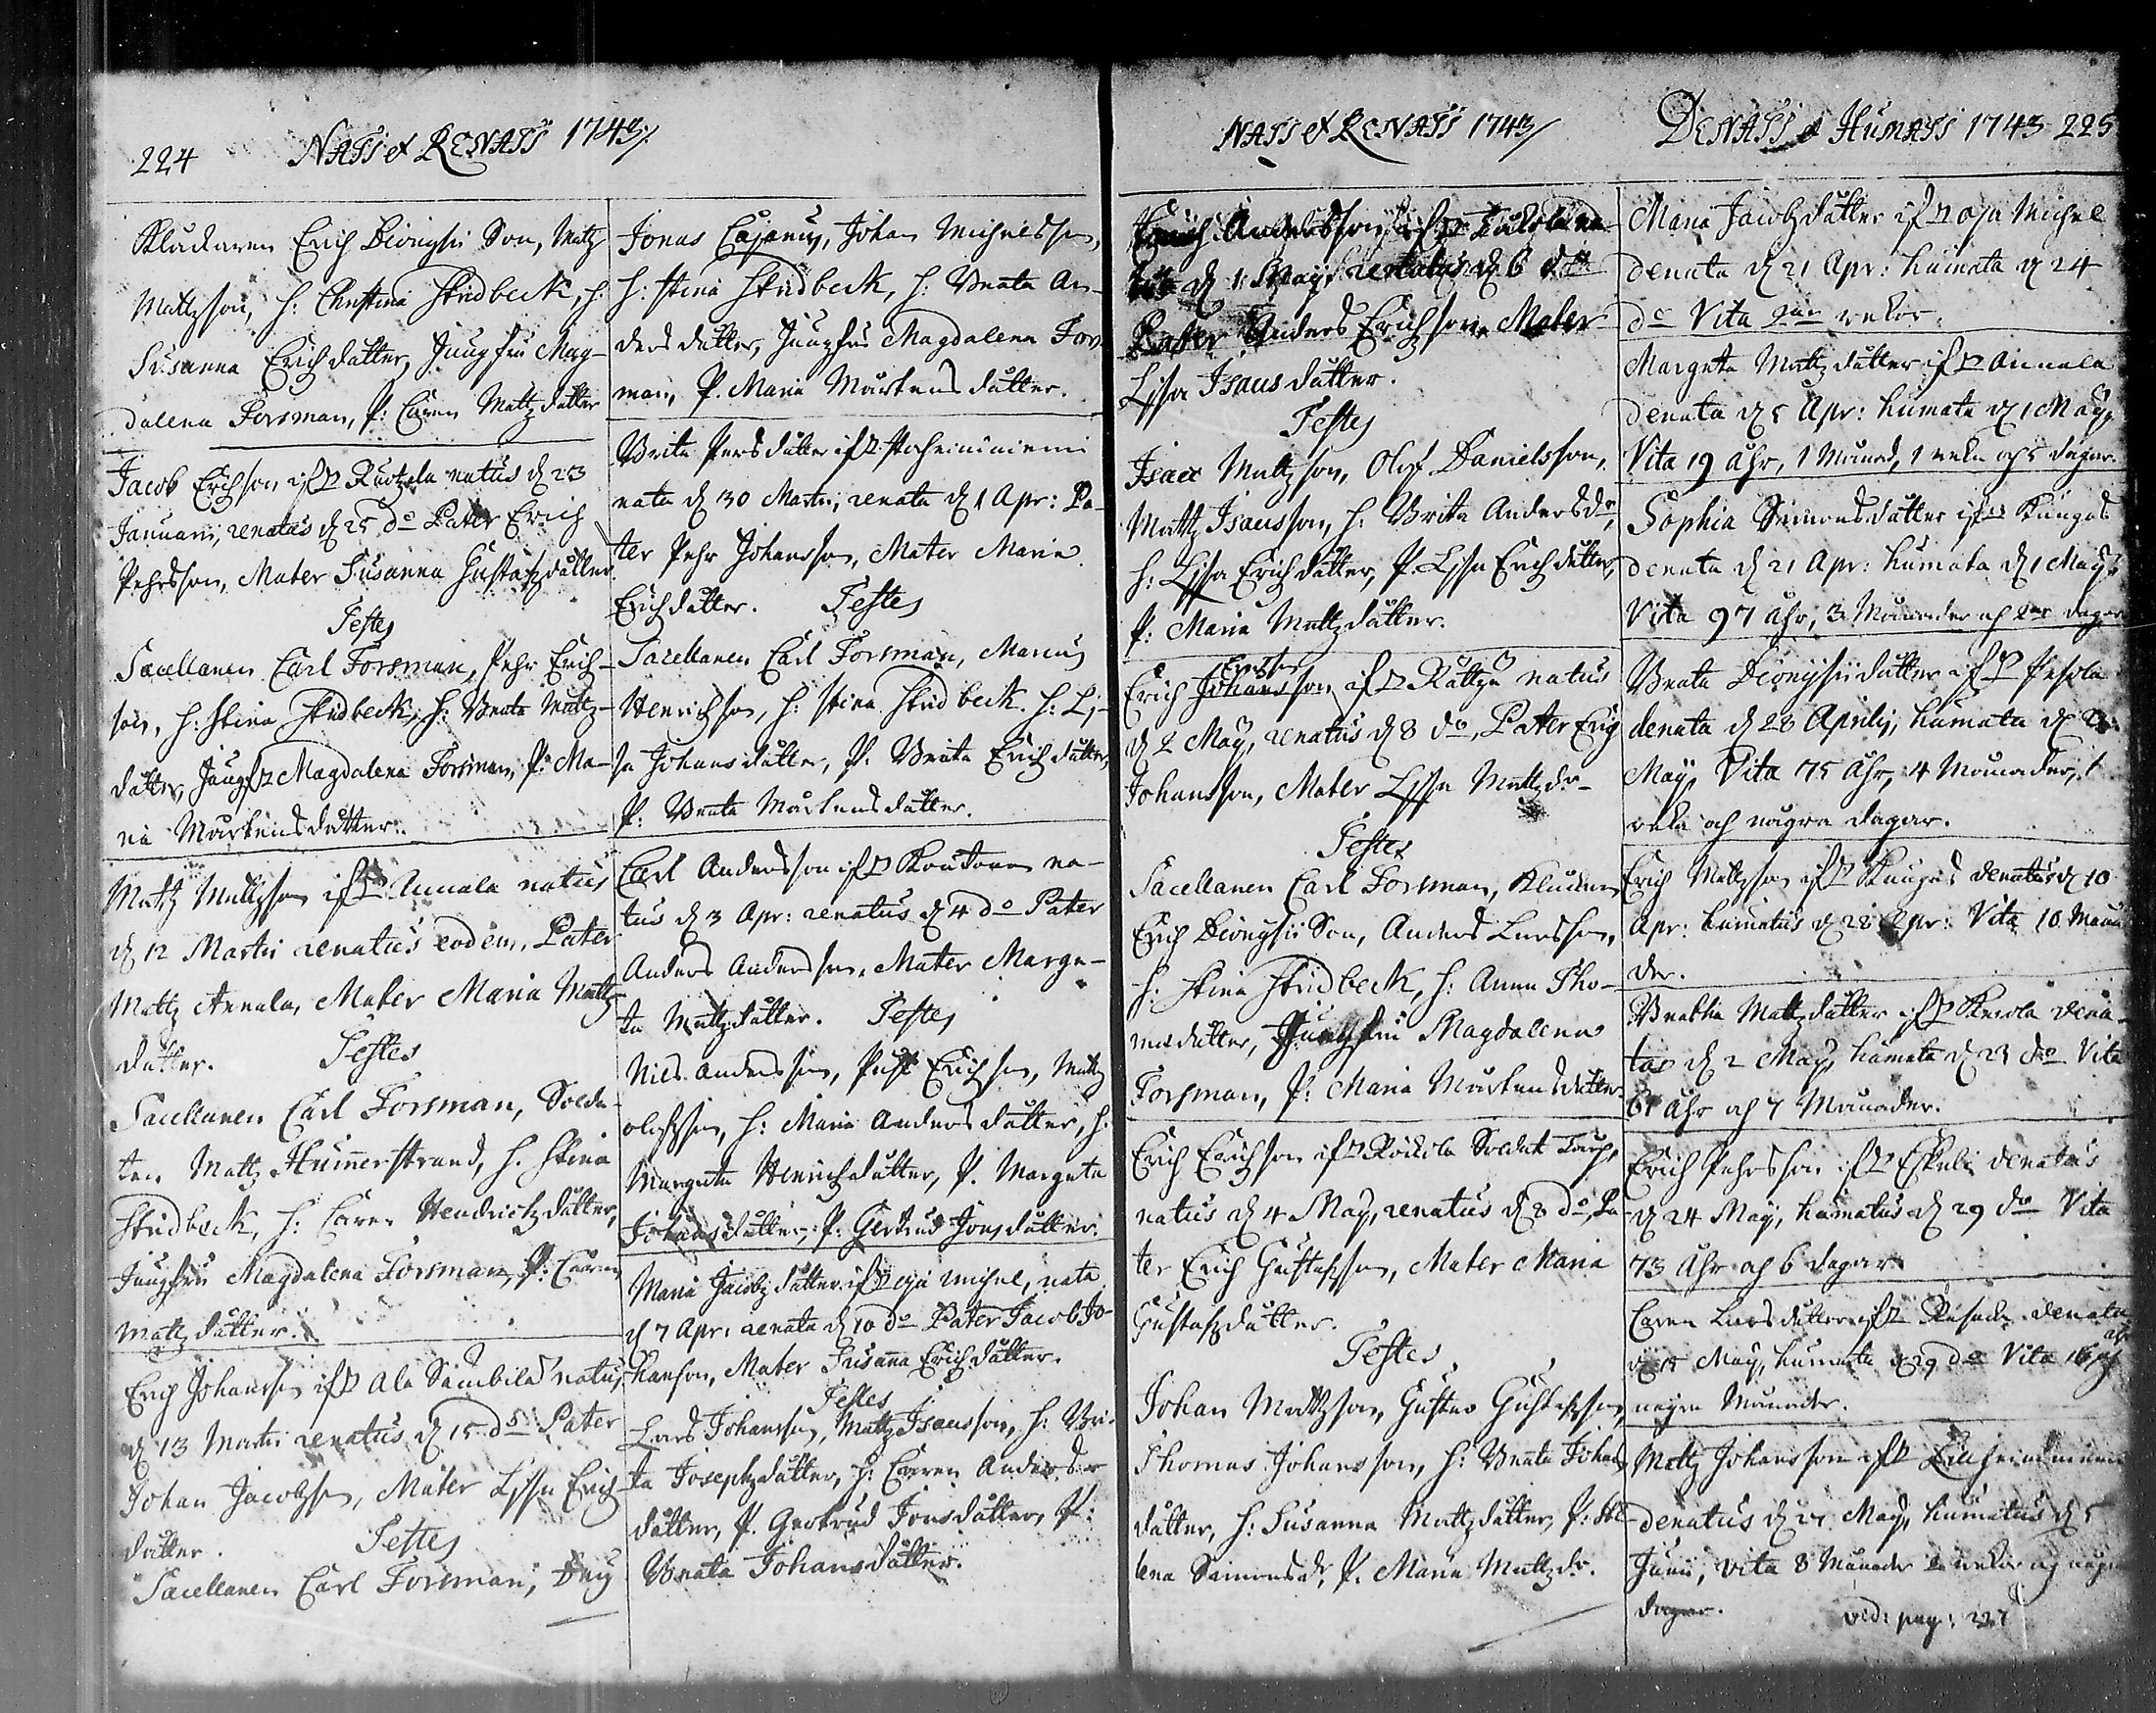 224 NATI et RENATI 1743/.
Klockaren Erich Dionysii Son, Matz
Mattzson, h: Christina Stridbeck, h:
Susanna Erichdatter, Jungfru Mag-
dalena Forsman, P: Caren Mattzdatter
Jacob Erichson ifr. natus d 23
Januarii, renatus d 25 do Pater Erich
Pehrsson, Mater Susanna Gustafzdatter
Testes
Sacellanen Carl Forsman, Pehr Erich-
son, h: Stina Stridbeck, h: Beata Mattz-
datter, Jungfr Magdalena Forsman, P: Ma-
ria Mårtensdatter.
Mattz Mattzson ifr Annala natus
d 12 Martii renatus eodem, Pater
Mattz Annala, Mater Maria Mattz-
datter. Testes
Sacellanen Carl Forsman, Solda-
ten Mattz Hummerstrand, h. Stina
Stridbeck, h: Caren Hendrichzdatter,
Jungfru Magdalena Forsman, P: Caren
Mattzdatter.
Erich Johansson ifr Ala natus
d 13 Martii renatus d 15 do Pater
Johan Jacobson, Mater Lissa Erich-
datter. Testes
Sacellanen Carl Forsman,
Jonas Cajanus, Johan Michelsson,
h: Stina Stridbeck, h: Beata An-
dersdatter, Jungfru Magdalena Fors-
man, P. Maria Mårtensdatter.
Brita Persdatter ifr
nata d 30 Martii, renata d 1 Apr: Pa-
ter Pehr Johansson, Mater Maria
Erichdatter. Testes
Sacellanen Carl Forsman, Marcus
Henrichson, h: Stina Stridbeck. h: Li-
sa Johansdatter, P: Beata Erichdatter,
P: Beata Mårtensdatter.
Carl Andersson ifr na-
tus d 3 Apr: renatus d 4 do Pater
Anders Andersson, Mater Marga-
ta Mattzdatter. Testes
Nils Andersson, Erichson, Mattz
olofzson, h: Maria Andersdatter, h.
Margreta Henrichsdatter, P. Margeta
Johansdatter, P: Gertrud Jonsdatter.
Maria Jacobzdatter ifr oja Michel, nata
d 7 Apr: renata d 10 do Pater Jacob Jo-
hanson, Mater Susanna Erichdatter.
Testes
Lars Johansson, Mattz Isacsson, h: Bri-
ta Josephzdatter, h: Caren Anders
datter, P. Gertrud Jonsdatter, P:
Beata Johansdatter.
NATI et RENATI 1743/
Erich Andersson ifr
d 1 May, renatus d 6 do
Pater Anders Erichson, Mater
Lissa Isacsdatter.
Testes
Isac Mattzson, Olof Danielsson,
Mattz Isacsson, h: Brita Andersdr,
h: Lissa Erichdatter, P. Lissa Erichdatter,
P: Maria Mattzdatter.
Erichs
Erich Johansson ifr natus
d 2 May, renatus d 8 do, Pater Erich
Johansson, Mater Lissa Mattzdr
Testes
Sacellanen Carl Forsman, Klockaren
Erich Dionysii Son, Anders Larsson,
h: Stina Stridbeck, h: Anna Tho-
masdatter, Jungfru Magdalena
Forsman, P: Maria Mårtensdatter
Erich Erichson ifr Soldat
natus d 4 May, renatus d 8 do, Pa-
ter Erich Gustafsson, Mater Maria
Gustafzdatter.
Testes
Johan Mattzson, Gustav Gustafsson,
Thomas Johansson, h: Beata Johans
datter, h: Susanna Mattzdatter, P: He-
lena Simonsdr, P. Maria Mattzdr.
DENATI & HUMATI 1743 225
Maria Jacobzdatter ifr oja Michel
denata d 21 Apr: humata d 24
do Vita wekor.
Margeta Mattzdatter ifr Annala
denata d 5 Apr: humata d 1 May,
Vita 19 åhr, 1 Månad, 1 weka och 5 dagar.
Sophia Simonsdatter ifr Kangas
denata d 21 Apr: humata d 1 May
Vita 97 åhr, 3 Månader och dagar
Beata Dionysiidatter ifr Pesola
denata d 28 Aprilis, humata d
May, Vita 75 åhr, 4 Månader, 1
weka och några dagar.
Erich Mattzson ifr Kangas denatus d 10
Apr: humatus d 28 Apr: Vita 10 Måna
der.
Mattzdatter ifr dena-
ta d 2 May, humata d 23 do Vita
61 åhr och 7 Månader.
Erich Pehrsson ifr denatus
d 24 May, humatus d 29 do Vita
73 åhr och 6 dagar.
Caren Larsdatter ifr denata
d 15 May, humata d 29 do Vita 16 åhr
några Månader.
Mattz Johansson ifr
denatus d May, humatus d 5
Junii, Vita 8 Månader wekor och några
dagar. vid: pag: 227